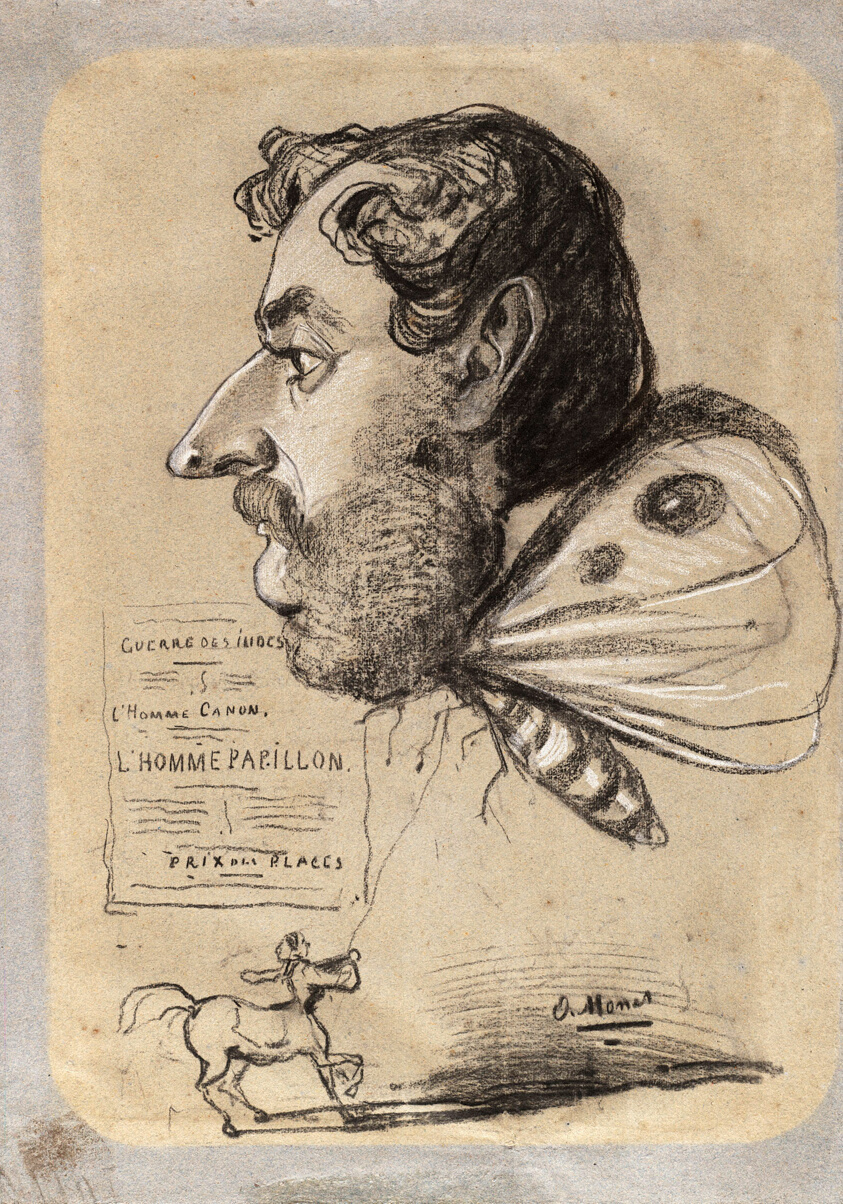 GUERRE DES INDES
L'HOMME CANON.
L'HOMME PAPILLON.
PRIX DES PLACES
O. Monet